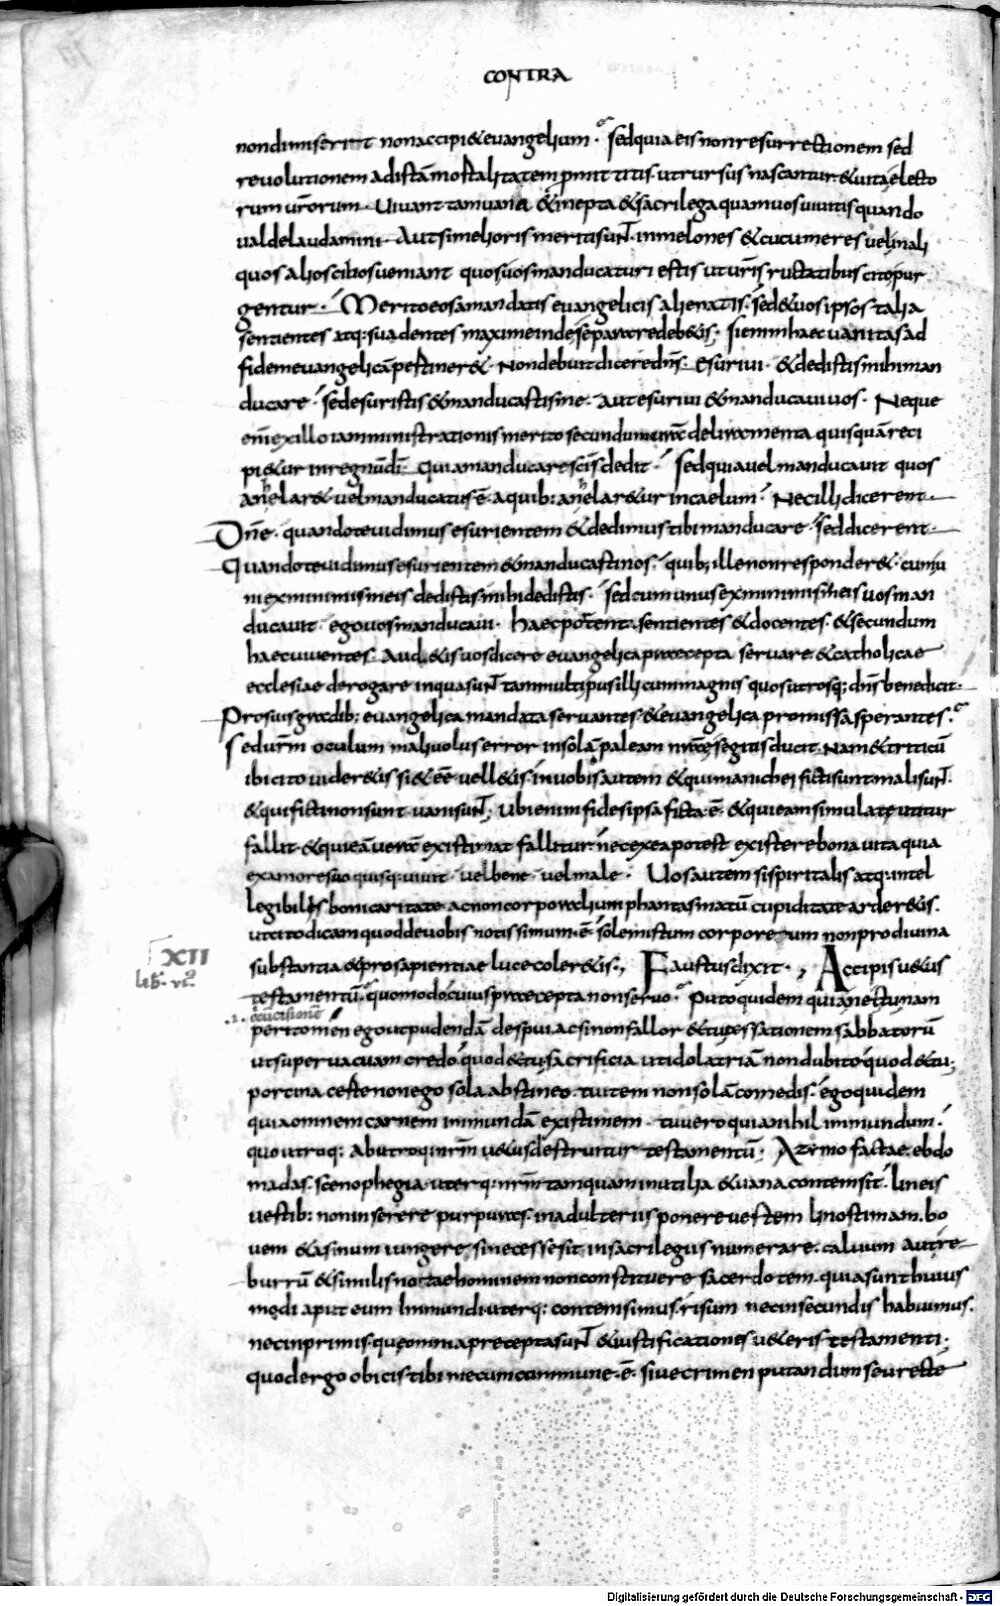 CONTRA
non dimiserint non accipi& evangelium · sed quia eis non resurrectionem sed
revolutionem ad istā mortalitatem promittitis · ut rursus nascantur & vitā electo
rum vr̄orum · Vivant tam vana & inepta & sacrilega quam vos vivitis quando
valde laudamini · Aut si melioris meriti sunt · in melones & cucumeres vel in ali
quos alios cibos veniant quos vos manducaturi estis ut vr̄is ructatibus cito pur
gentur · Merito eos a mandatis evangelicis alienatis · sed & vos ipsos talia
sentientes atq; suadentes maxime inde separare deb&is · si enim haec vanitas ad
fidem evangelicā pertiner& · Non debuit dicere dn̄s · Esurivi · & dedistis mihi man
ducare · sed esuristis & manducastis me · aut esurivi & manducavi vos · Neque
eni͞ ex illo iam ministrationis merito secundum deliramenta quisquā reci
pi&ur in regnū dī · quia manducare scīs dedit · sed qui a vel manducavit quos
anhelar& vel manducatus ē a quib; anhelar&ur in caelum · Nec illi dicerent ·
Dn̄e · quando te vidimus esurientem & dedimus tibi manducare · sed dicerent ·
Quando te vidimus esurientem & manducasti nos · quib; ille non responder& · cum uni
ex minimis meis dedistis mihi dedistis · sed cum unus ex minimis meis vos man
ducavit · ego vos manducavi · haec portenta sentientes & docentes · & secundum
haec viventes · Aud&is vos dicere evangelica praecepta servare & catholicae
ecclesiae derogare in qua sunt tam multi pusilli cum magnis quos utrosq; dn̄s benedicit ·
Pro suis gradib; evangelica mandata servantes & evangelica promissa sperantes ·
Sed vr̄m oculum malivolus error in solā paleam nr̄ae segitis ducit · Nam & triticū
ibi cito vider&is si & eē vell&is · in vobis autem & qui manichei ficti sunt mali sunt ·
& qui ficti non sunt vani sunt · Ubi enim fides ipsa ficta ē · & qui eam simulate utitur
fallit · & qui eā verā existimat fallitur · nec ex ea potest existere bona vita quia
ex amore suo quisq; vivit · vel bene · vel male · Vos autem si spiritalis atq; intel
legibilis boni caritate ac non corporalium phantasmatū cupiditate arder&is ·
ut cito dicam quod de vobis notissimum ē · solem istum corporeum non pro divina
XII
lib. vi.
substantia & pro sapientiae luce coler&is ., Faustus dixit · , Accipis v&us
testamentū · quomodo cuius praecepta non servo · Puto quidem quia nec tu nam
.i. circūcisionē
peritomen ego ut pudendā despui ac si non fallor & tu cessationem sabbatorū
ut supervacuam credo quod & tu · sacrificia ut idolatriā non dubito quod & tu ·
porcina certe non ego sola abstineo · tu item non solā comedis · ego quidem
quia omnem carnem immundā existimem · tu vero quia nihil immundum ·
quo utroq; ab utroq; nr̄m v&us destruitur testamentū · Azimo factae ebdo
madas · scenophegia uterq; nr̄m tamquam inutilia & vana contemsit · lineis
vestib; non inserere purpuras · in adulteriis ponere vestem linostimam · bo
vem & asinum iungere si necesse sit in sacrilegiis numerare · calvum aut re
burrū & similis notae hominem non constituere sacerdotem · quia sunt huius
modi aput eum immundi uterq; contemsimus · risum nec in secundis habuimus ·
nec in primis · que omnia precepta sunt & iustificationes v&eris testamenti ·
quod ergo obicis tibi mecum commune ē · sive crimen putandum seu recte
Digitalisierung gefördert durch die Deutsche Forschungsgemeinschaft - DFG